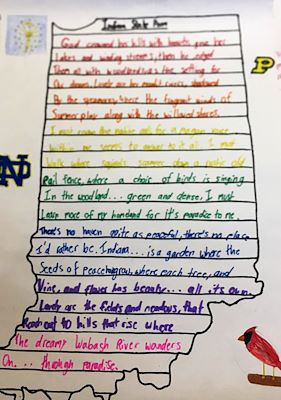 Indiana State Poem
God crowned her hills with beauty, gave her
Lakes and winding streams, then He edged
Them all with woodlands as the setting for
Our dreams. Lovely are her moonlit rivers, shadowed
By the sycamores, where the fragrant winds of
Summer play along with the willowed shores.
I must roam
Within me seems to answer to it all. I must
Walk where squirrels scamper down a rustic old
Rail fence, where a choir of birds is singing
In the woodland... green and dense. I must
Learn more of my homeland for it's paradise to me.
There's no haven quite as peaceful, there's no place
I'd rather be. Indiana... is a garden where the
Seeds of peace have grown, where each tree, and
Vine, and flower has beauty... all its own.
Lovely are the fields and meadows, that
Reach out to hills that rise where
The dreamy Wabash River wanders
On... through paradise.
P
ND